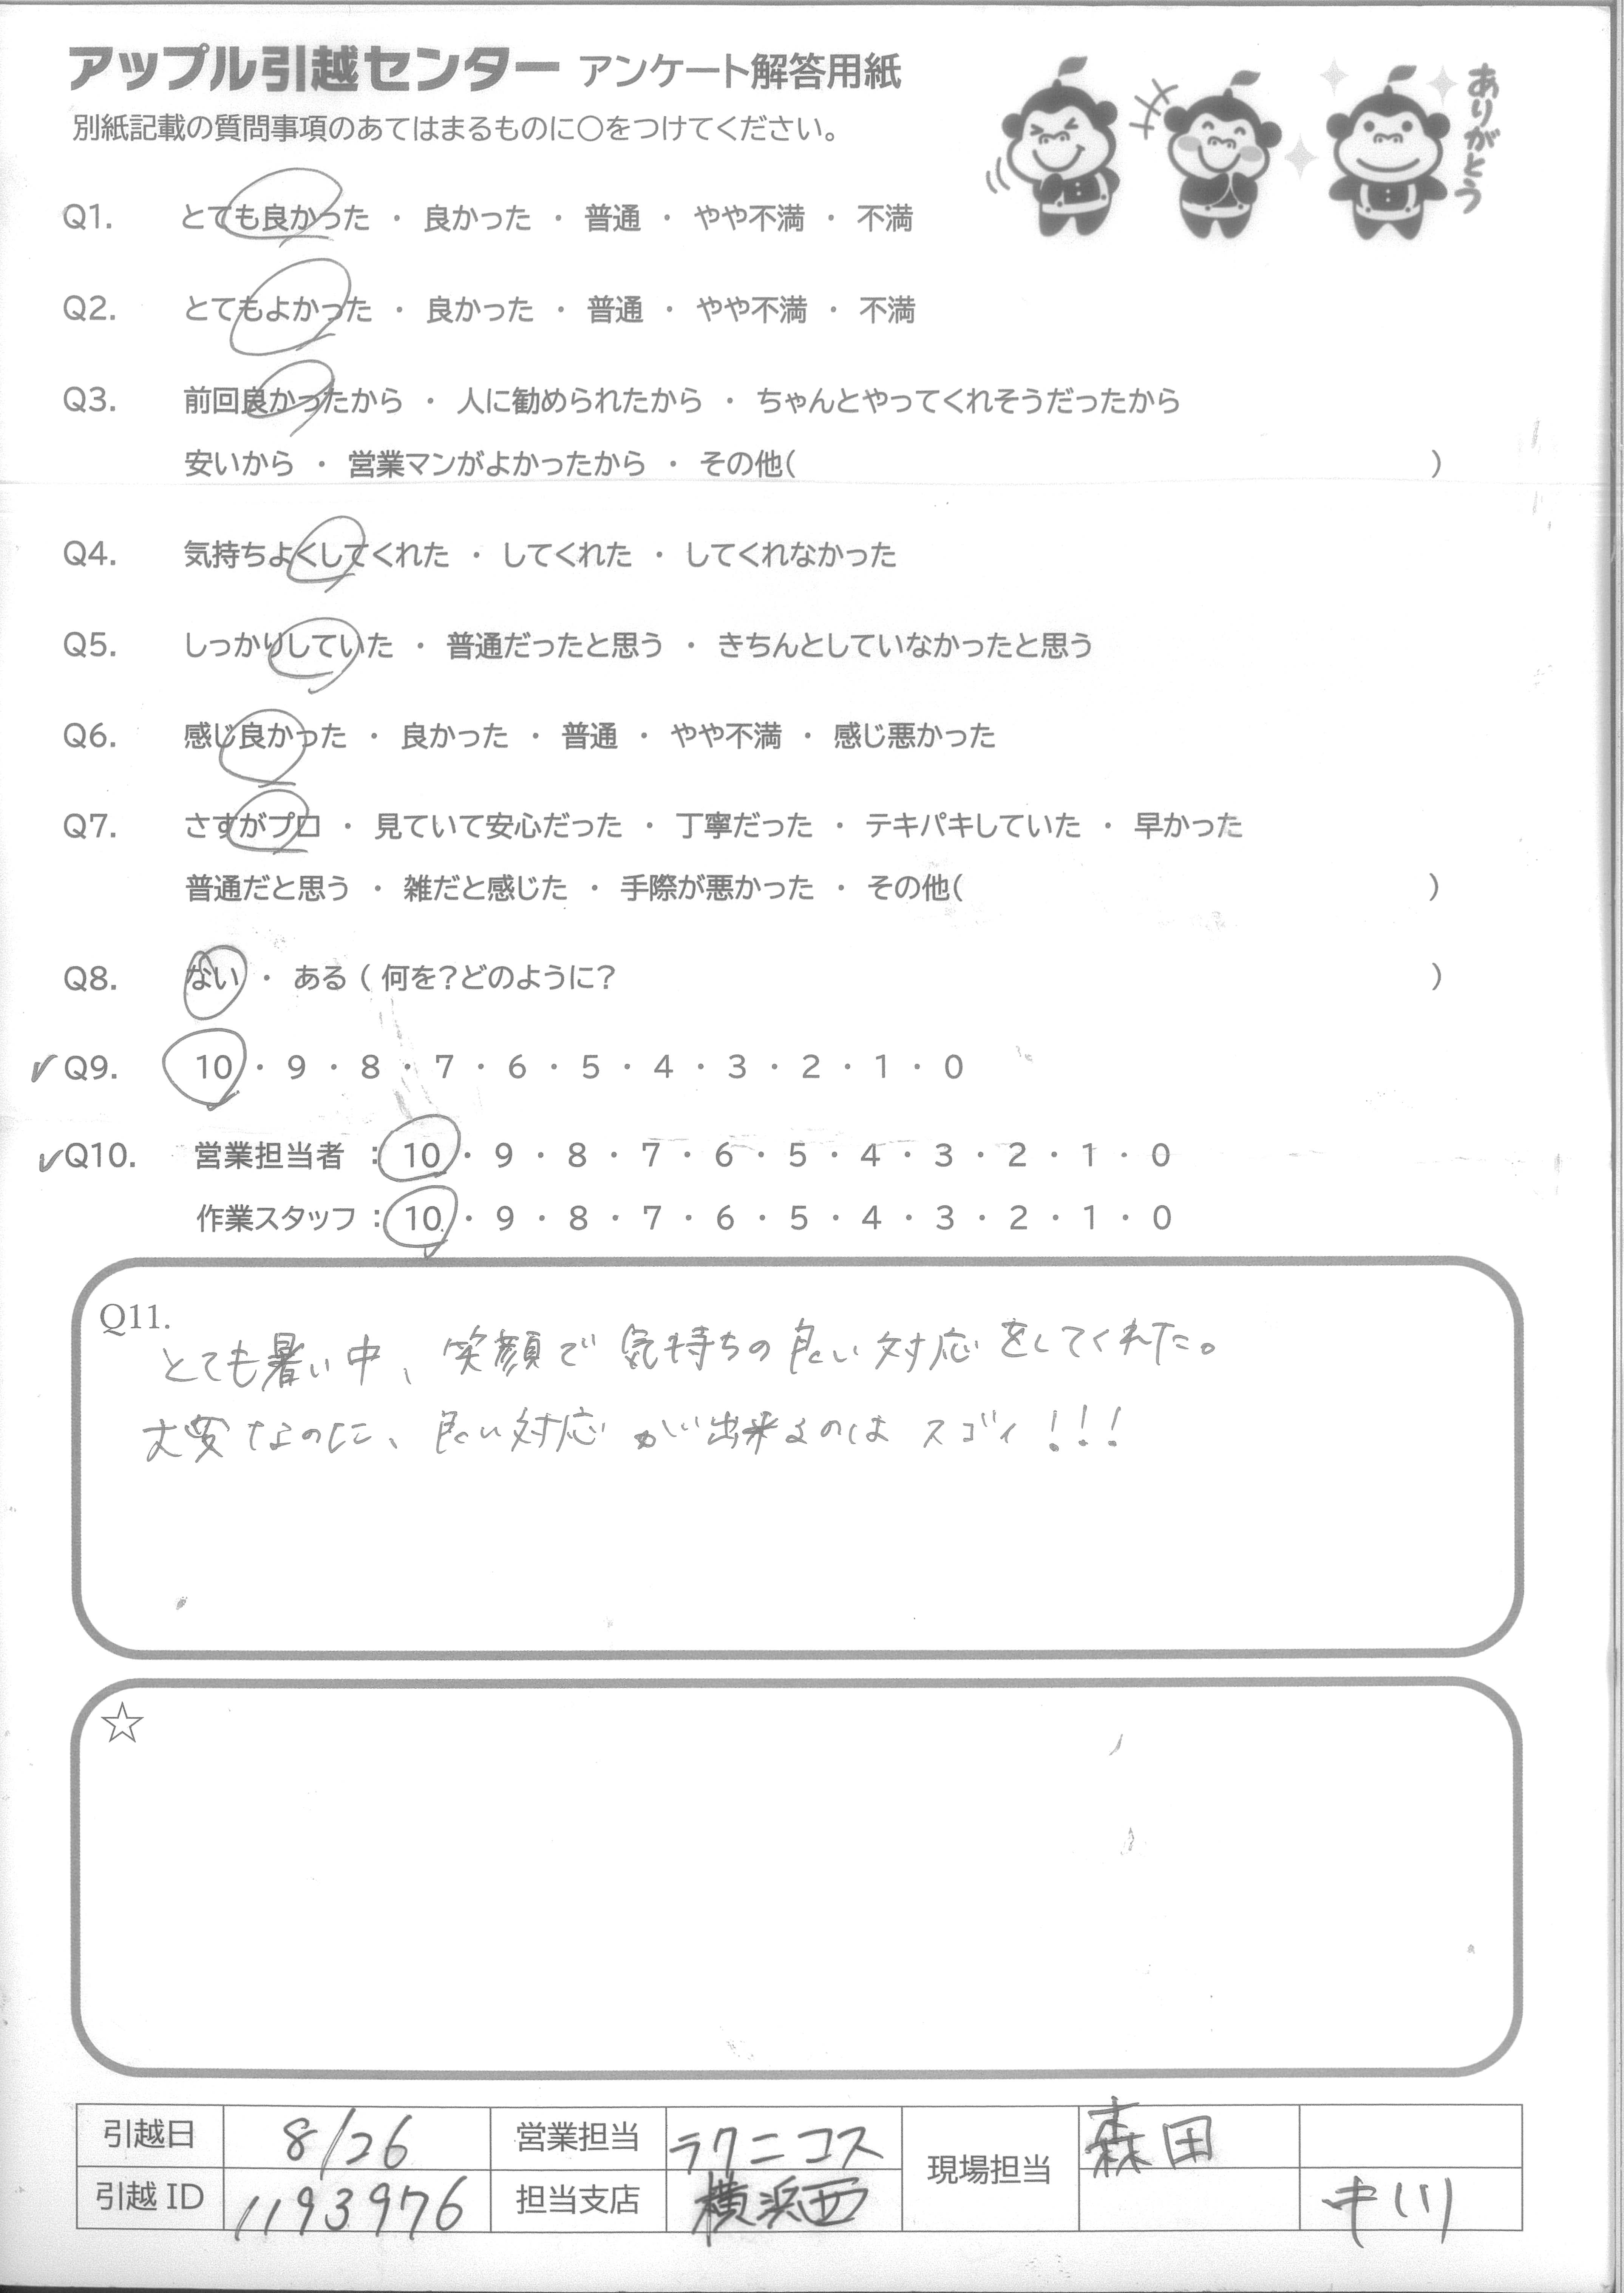 アップル引越センター アンケート解答用紙
別紙記載の質問事項のあてはまるものに○をつけてください。
ありがとう
Q1. とても良かった ・ 良かった ・ 普通 ・ やや不満 ・ 不満
Q2. とてもよかった ・ 良かった ・ 普通 ・ やや不満 ・ 不満
Q3. 前回良かったから ・ 人に勧められたから ・ ちゃんとやってくれそうだったから
安いから ・ 営業マンがよかったから ・ その他( )
Q4. 気持ちよくしてくれた ・ してくれた ・ してくれなかった
Q5. しっかりしていた ・ 普通だったと思う ・ きちんとしていなかったと思う
Q6. 感じ良かった ・ 良かった ・ 普通 ・ やや不満 ・ 感じ悪かった
Q7. さすがプロ ・ 見ていて安心だった ・ 丁寧だった ・ テキパキしていた ・ 早かった
普通だと思う ・ 雑だと感じた ・ 手際が悪かった ・ その他( )
Q8. ない ・ ある ( 何を?どのように? )
✓Q9. 10 ・ 9 ・ 8 ・ 7 ・ 6 ・ 5 ・ 4 ・ 3 ・ 2 ・ 1 ・ 0
✓Q10. 営業担当者 : 10 ・ 9 ・ 8 ・ 7 ・ 6 ・ 5 ・ 4 ・ 3 ・ 2 ・ 1 ・ 0
作業スタッフ : 10 ・ 9 ・ 8 ・ 7 ・ 6 ・ 5 ・ 4 ・ 3 ・ 2 ・ 1 ・ 0
Q11.
とても暑い中、笑顔で気持ちの良い対応をしてくれた。
大変なのに、良い対応が出来るのはスゴイ!!!
☆
引越日 8/26 営業担当 ラクニコス 現場担当 森田
引越ID 1193976 担当支店 横浜西 中川